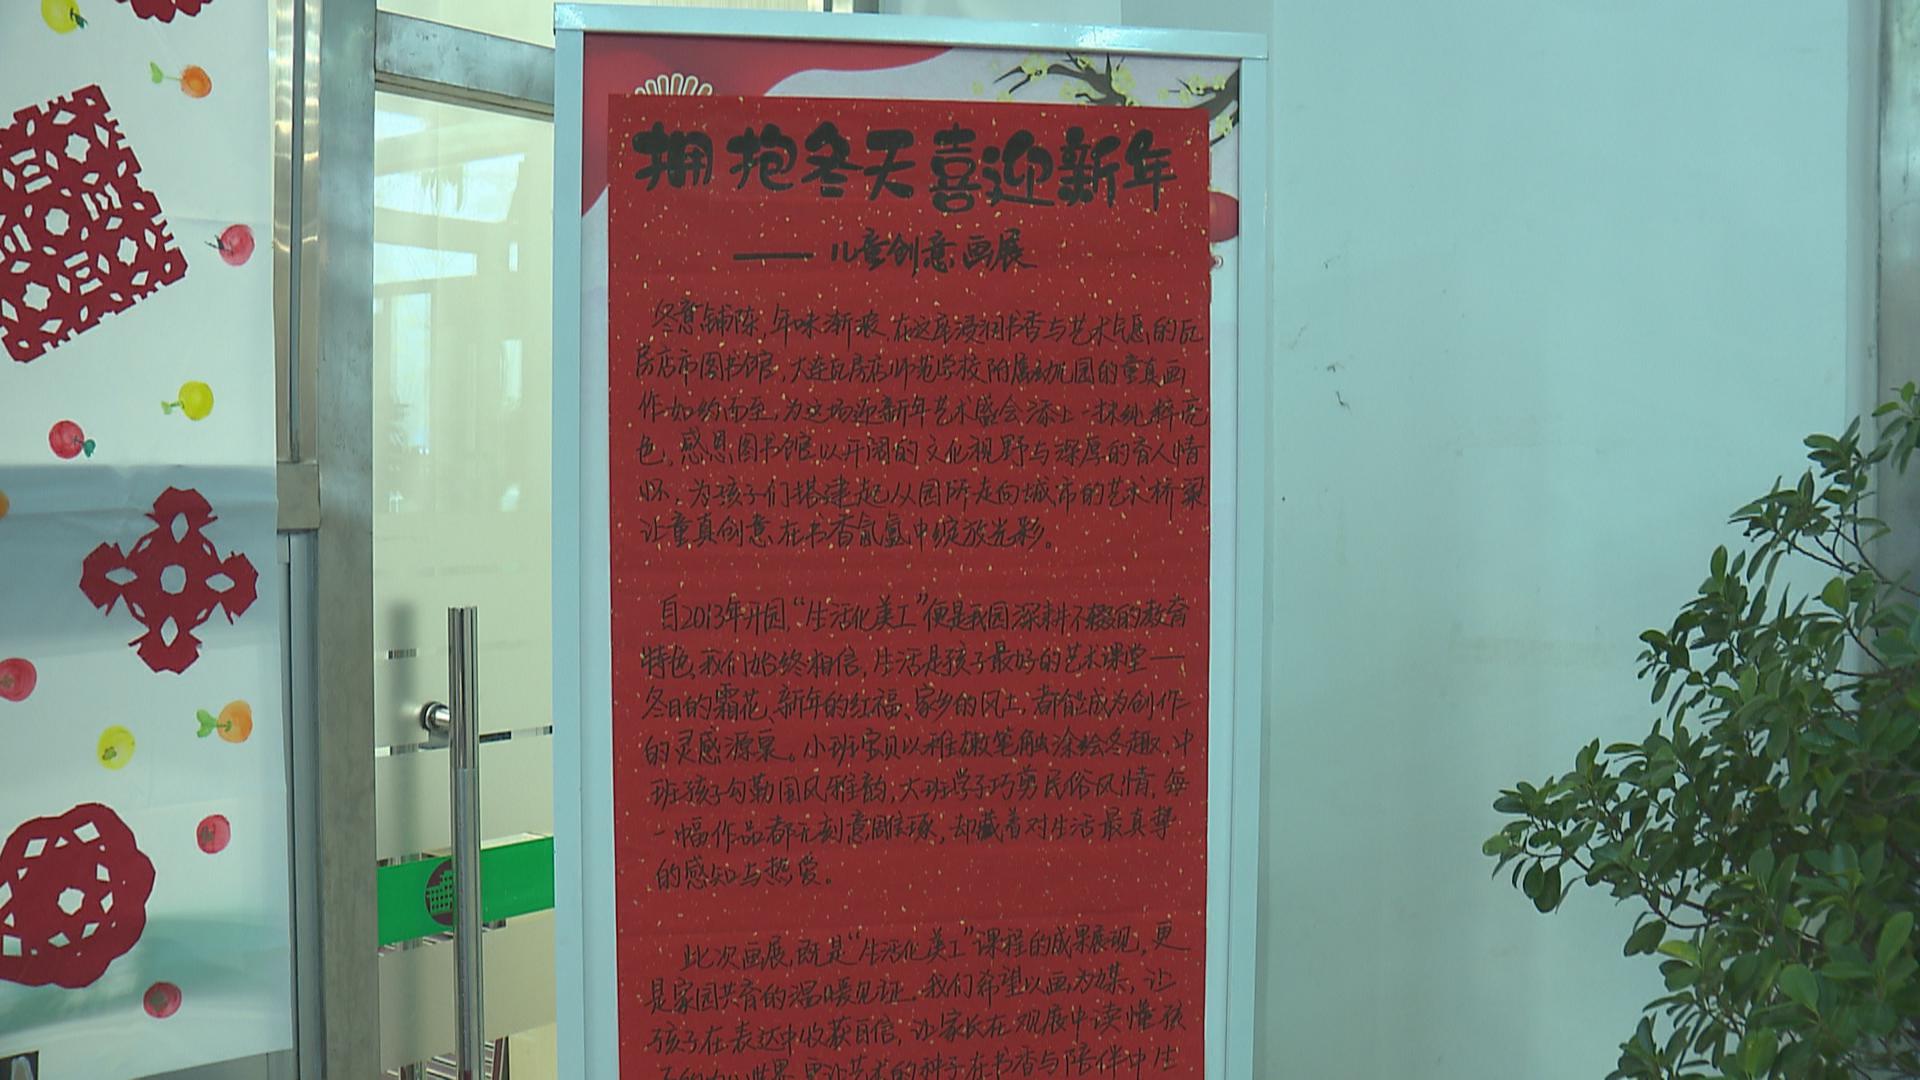 拥抱冬天喜迎新年
——儿童创意画展
冬意铺陈,年味渐浓,在这座浸润书香与艺术气息的瓦
房店市图书馆,大连瓦房店师范学校附属幼儿园的童真画
作如约而至,为这场迎新年艺术盛会添上一抹纯粹亮
色。感恩图书馆以开阔的文化视野与深厚的育人情
怀,为孩子们搭建起从园所走向城市的艺术桥梁
让童真创意在书香氤氲中绽放光彩。
自2013年开园,“生活化美工”便是我园深耕不辍的教育
特色,我们始终相信,生活是孩子最好的艺术课堂——
冬日的霜花、新年的红福、家乡的风土,都能成为创作
的灵感源泉。小班宝贝以稚嫩笔触涂绘冬趣,中
班孩子勾勒国风雅韵,大班学子巧剪民俗风情,每
一幅作品都无刻意雕琢,却藏着对生活最真挚
的感知与热爱。
此次画展,既是“生活化美工”课程的成果展现,更
是家园共育的温暖见证。我们希望以画为媒,让
孩子在表达中收获自信,让家长在观展中读懂孩
子的内心世界,更让艺术的种子在书香与陪伴中生